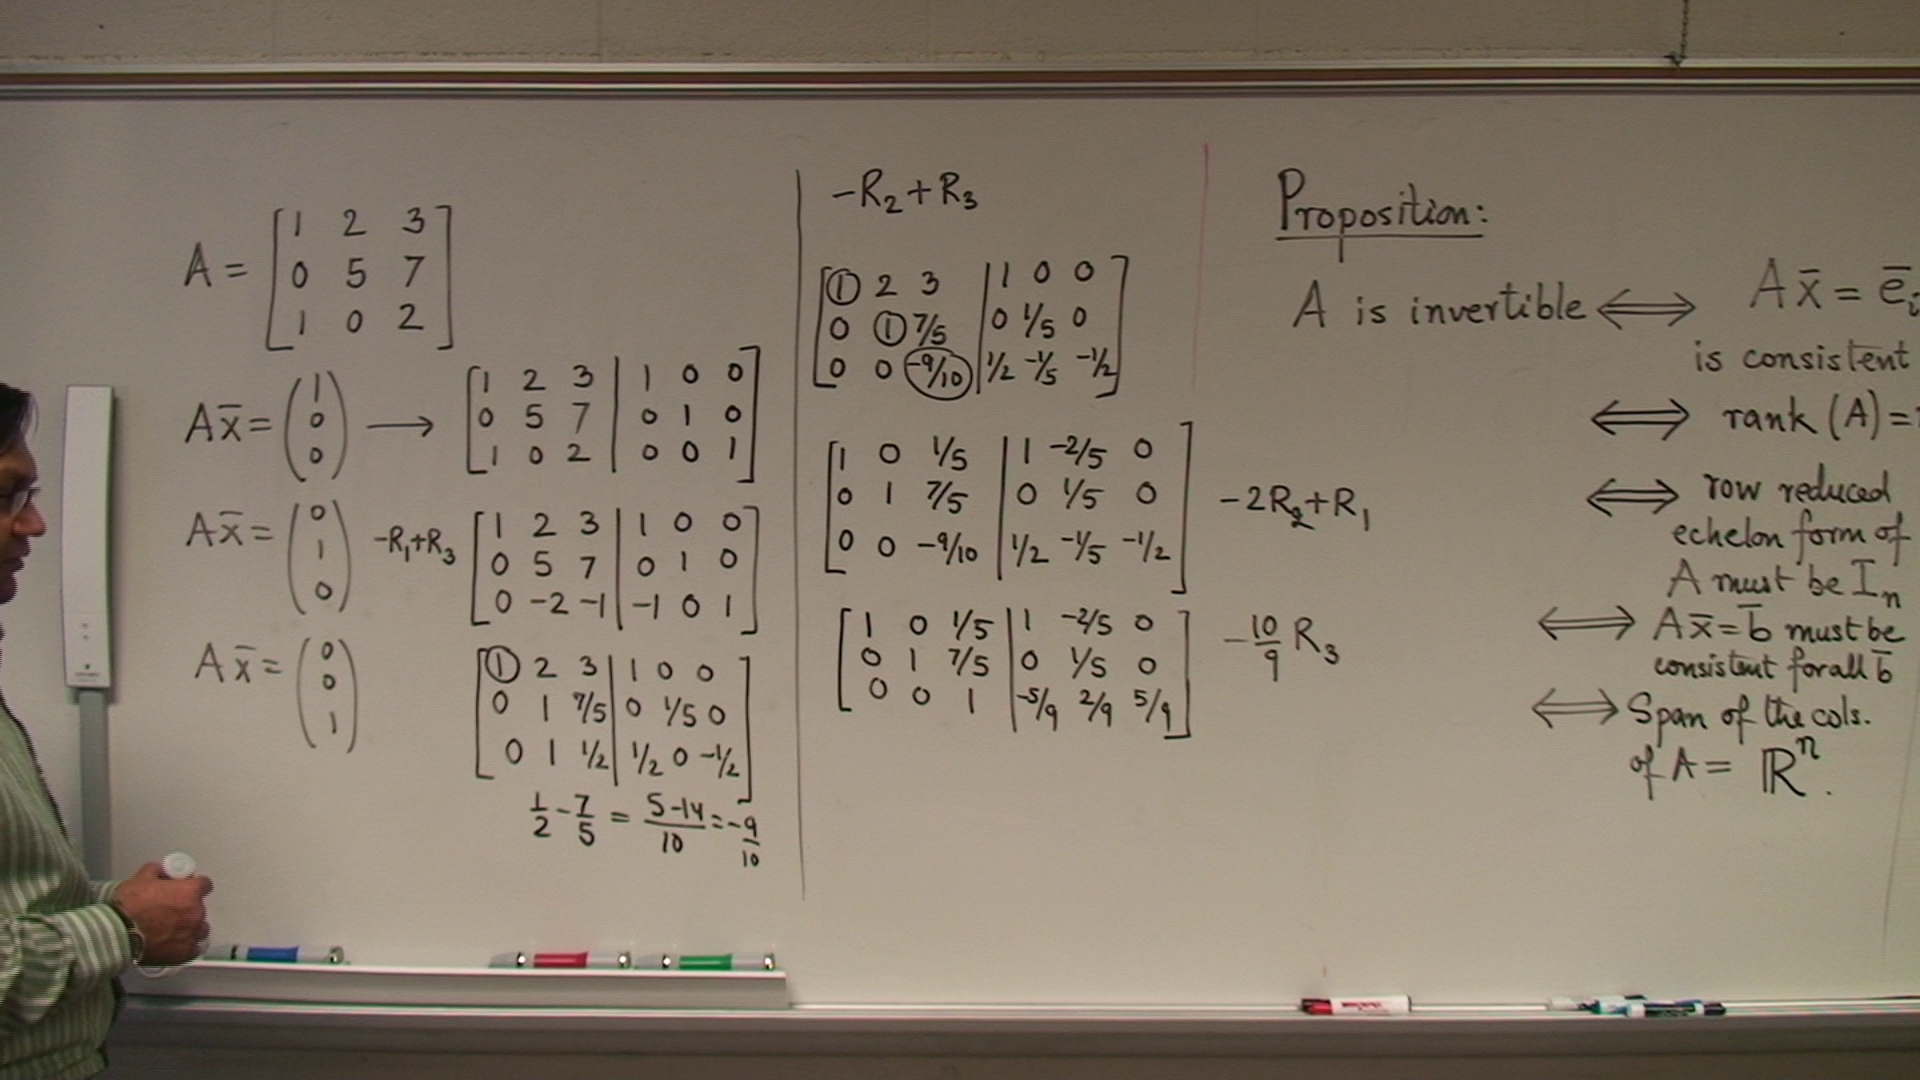 A = [ 1 2 3
0 5 7
1 0 2 ]
Ax̄ = ( 1
0
0 ) → [ 1 2 3 | 1 0 0
0 5 7 | 0 1 0
1 0 2 | 0 0 1 ]
Ax̄ = ( 0
1
0 ) -R₁+R₃ [ 1 2 3 | 1 0 0
0 5 7 | 0 1 0
0 -2 -1 | -1 0 1 ]
Ax̄ = ( 0
0
1 ) [ ① 2 3 | 1 0 0
0 1 7/5 | 0 1/5 0
0 1 1/2 | 1/2 0 -1/2 ]
1/2 - 7/5 = (5-14)/10 = -9/10
-R₂+R₃
[ ① 2 3 | 1 0 0
0 ① 7/5 | 0 1/5 0
0 0 -9/10 | 1/2 -1/5 -1/2 ]
[ 1 0 1/5 | 1 -2/5 0
0 1 7/5 | 0 1/5 0 ] -2R₂+R₁
0 0 -9/10 | 1/2 -1/5 -1/2 ]
[ 1 0 1/5 | 1 -2/5 0
0 1 7/5 | 0 1/5 0 ] -10/9 R₃
0 0 1 | -5/9 2/9 5/9 ]
Proposition:
A is invertible ⟺ Ax̄ = ēᵢ
is consistent
⟺ rank (A) =
⟺ row reduced
echelon form of
A must be Iₙ
⟺ Ax̄ = b̄ must be
consistent for all b̄
⟺ Span of the cols.
of A = ℝⁿ.